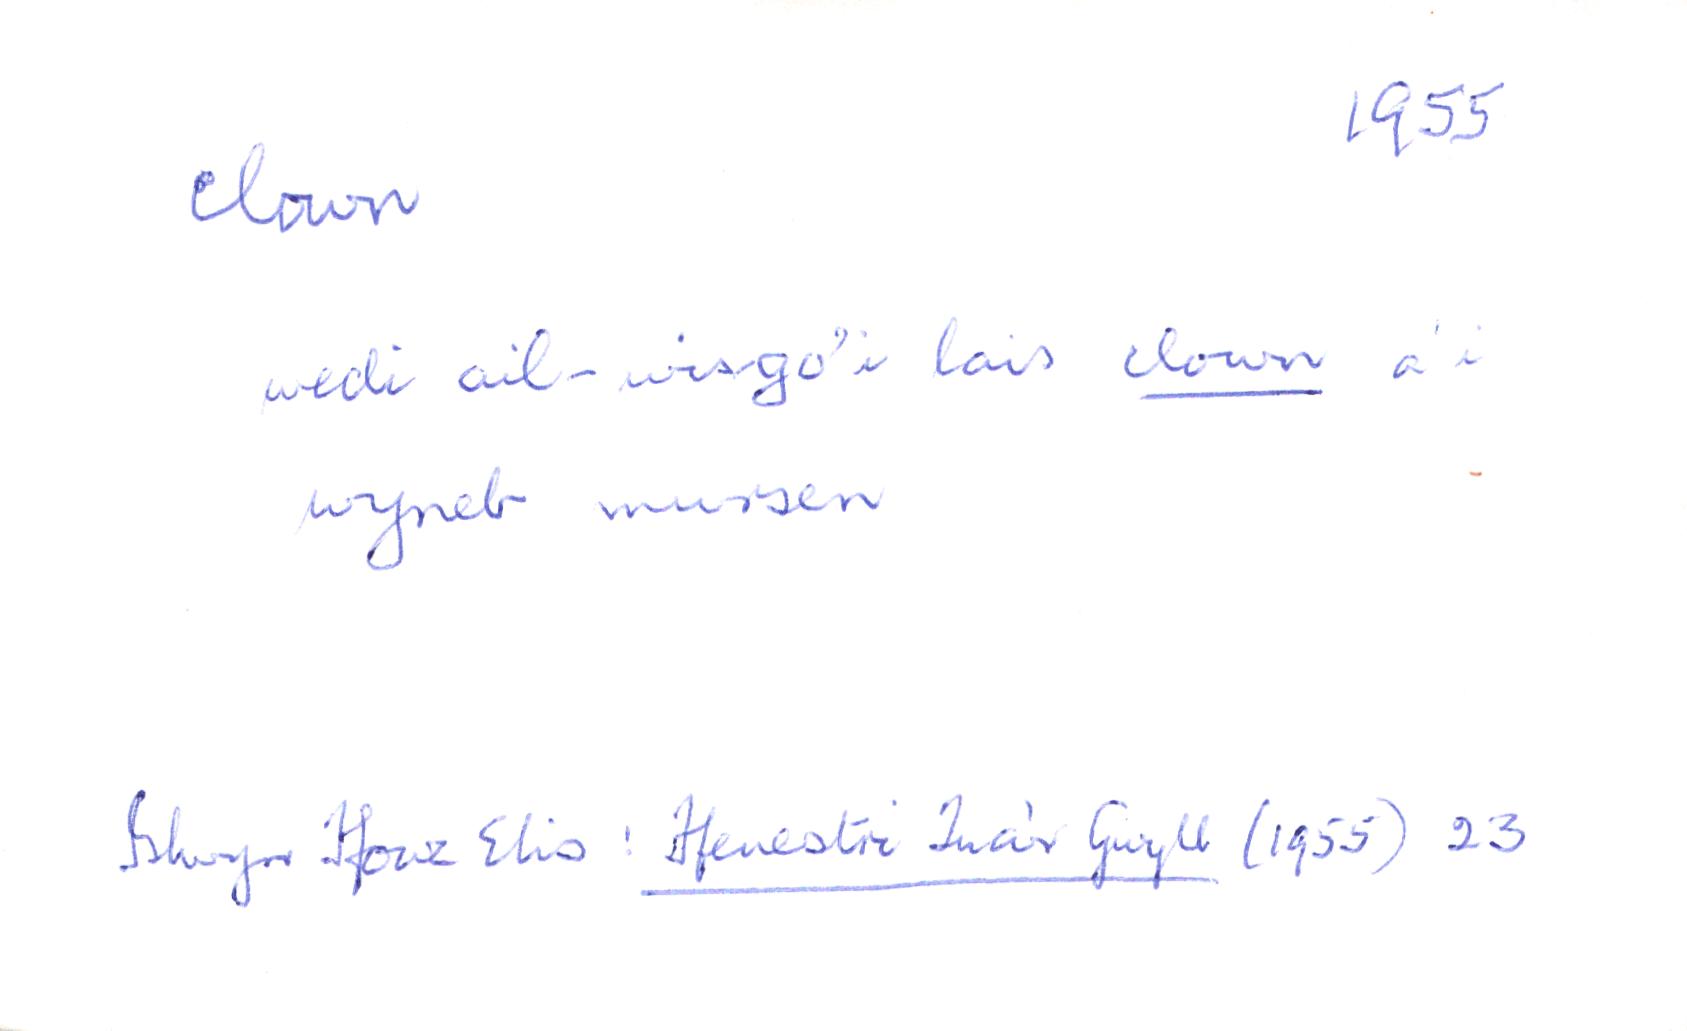 1955
clown
wedi ail-wisgo'i lais clown a'i
wyneb mursen
Islwyn Ffowc Elis : Ffenestri Tua'r Gwyll (1955) 23